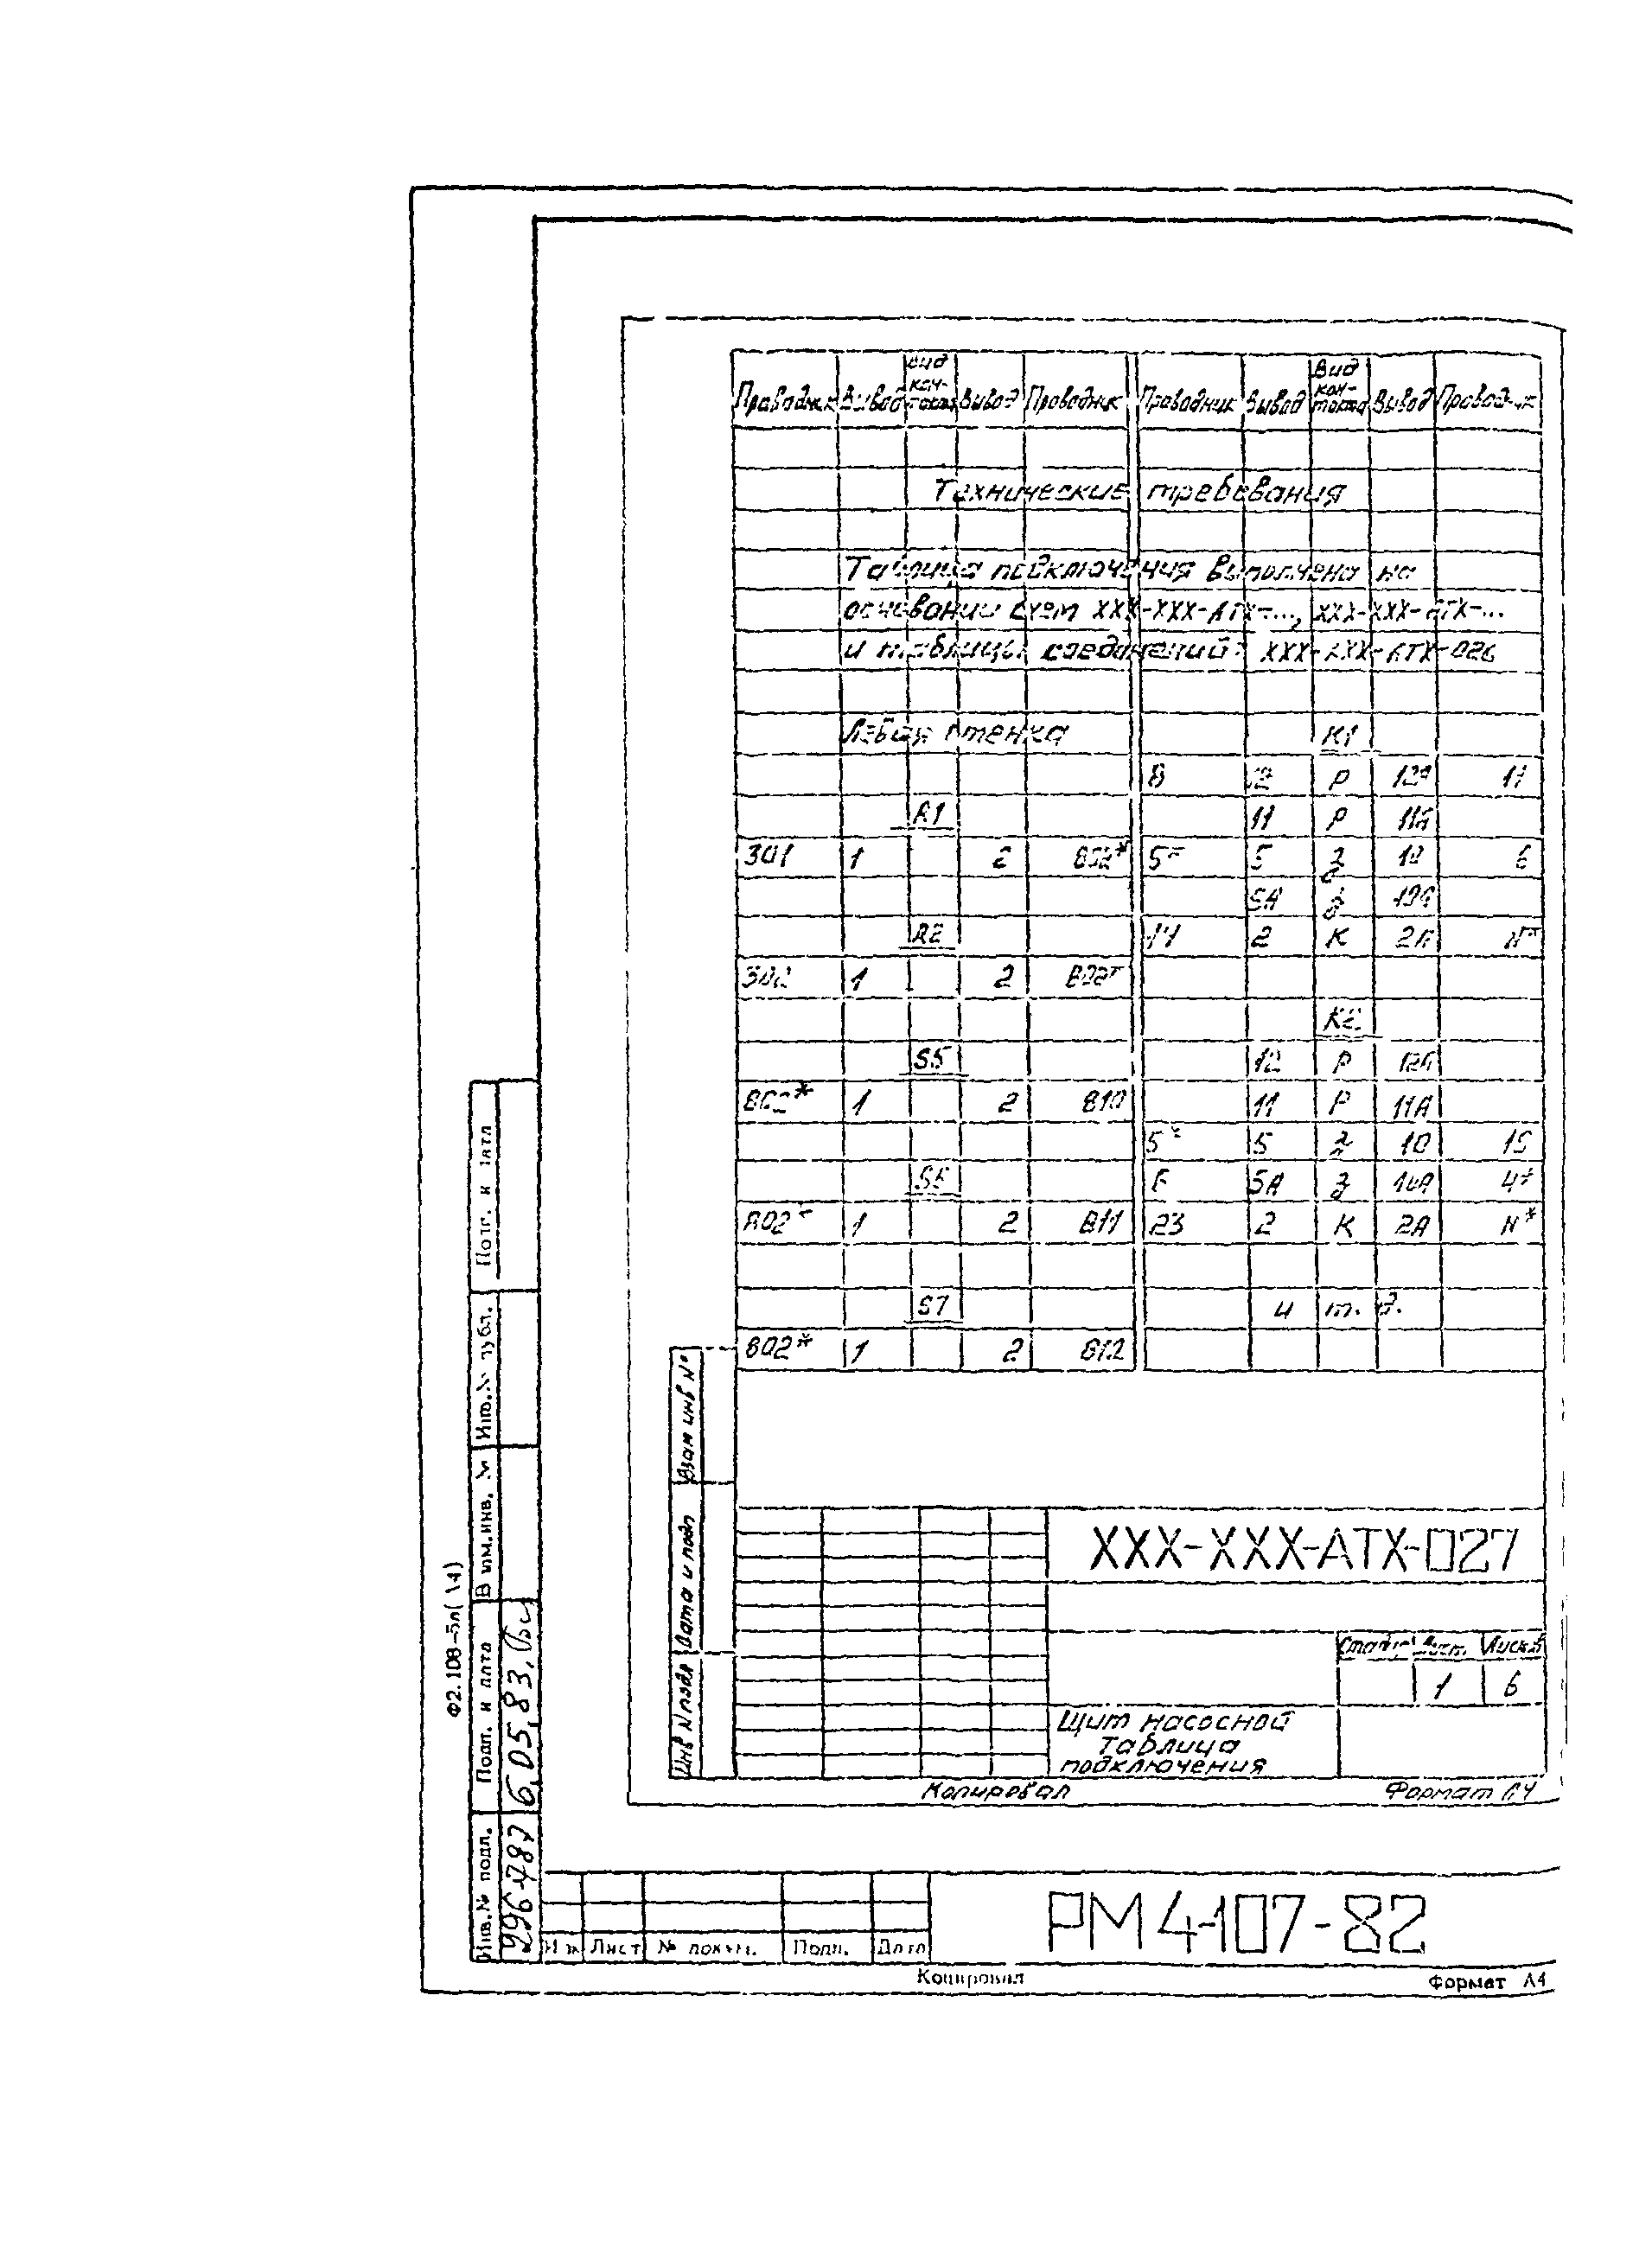 Проводник Вывод Вид кон-такта Вывод Проводник Проводник Вывод Вид кон-такта Вывод Проводник
Технические требования
Таблица подключения выполнена на
основании схем XXX-XXX-АТХ-..., XXX-XXX-АТХ-...
и таблицы соединений XXX-XXX-АТХ-026
Левая стенка К1
8 12 Р 12А 11
R1 11 Р 11А
301 1 2 802* 5* 5 З 10 6
5А З 10А
R2 14 2 К 2А N*
302 1 2 802*
К2
S5 12 Р 12А
802* 1 2 810 11 Р 11А
5* 5 З 10 15
6 5А З 10А 4*
802* 1 2 811 23 2 К 2А N*
S7 и т. д.
802* 1 2 812
Взам инв №
Дата и подп
Инв № подл
XXX-XXX-АТХ-027
Стадия Лист Листов
1 6
Щит насосной
Таблица
подключения
Копировал Формат А4
Ф2.108-5л(А4)
Подп. и дата
Инв.№ дубл.
Взам.инв. №
Подп. и дата
Инв.№ подл.
Лист № докум. Подп. Дата
РМ4-107-82
Копировал Формат А4